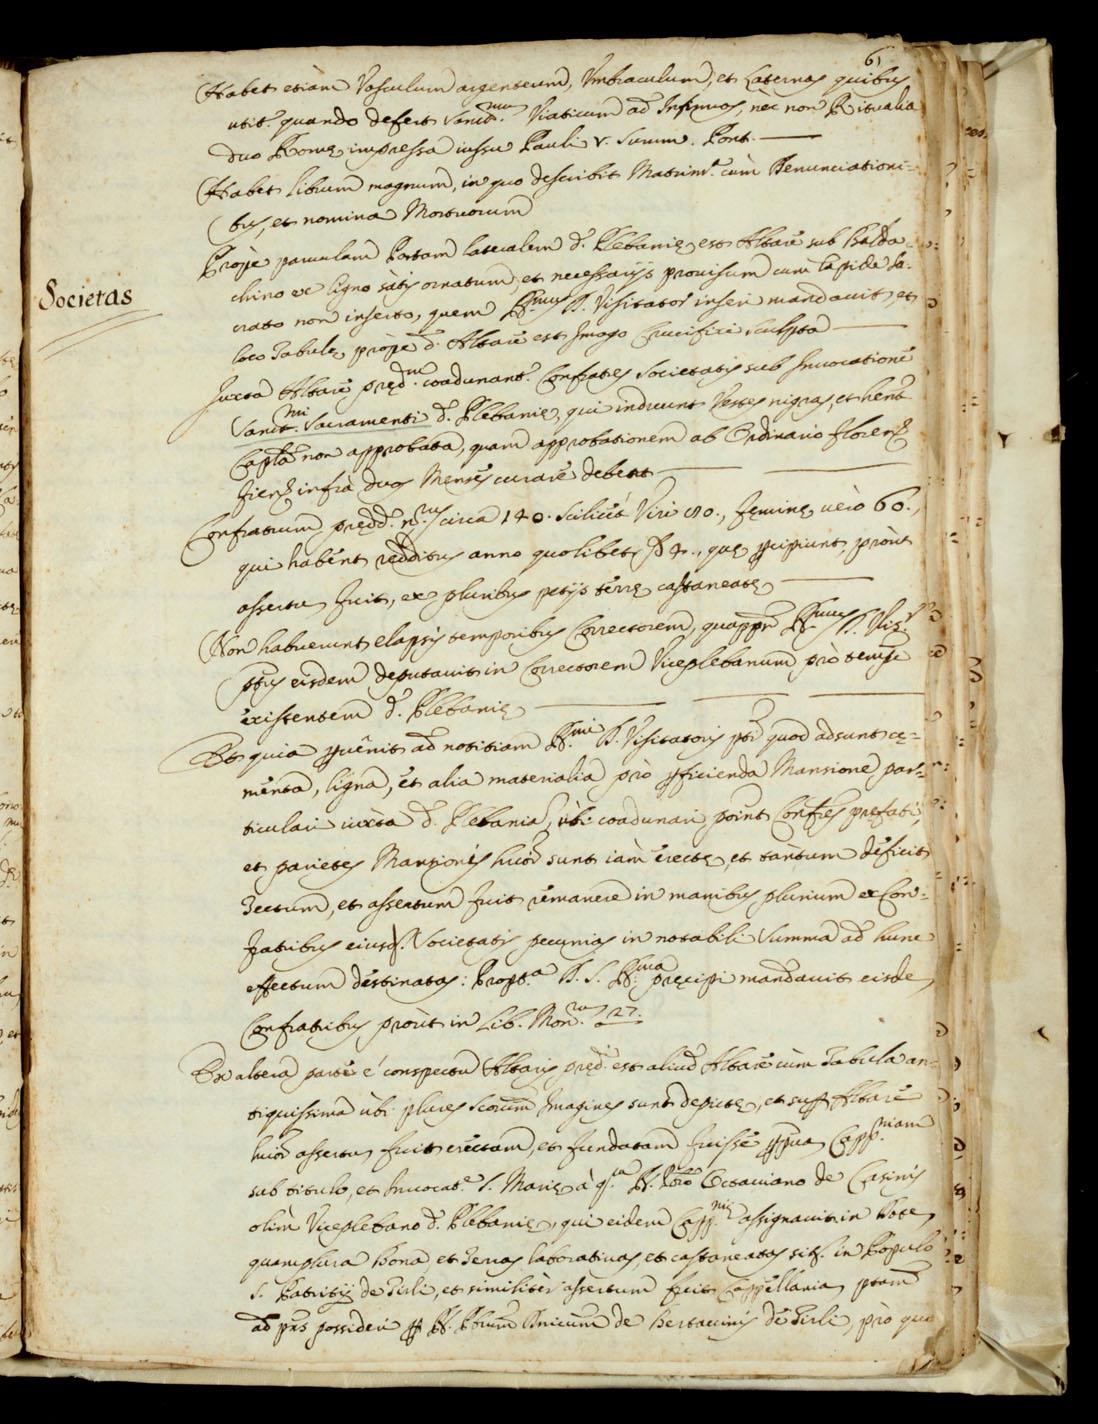 61
Habet etiam Vasculum argenteum, Umbraculum, et Laternas quibus
utit.r quando defert Sanct.mum Viaticum ad Infirmos, nec non Ritualia
duo Romę impressa iussu Pauli V. Summ. Pont.
Habet librum magnum, in quo describit Matrim.a cum Denunciationi-
bus, et nomina Mortuorum
Prope parvulam Portam lateralem d. Plebanię est Altare sub Balda-
chino ex ligno satis ornatum, et necessarijs provisum cum lapide sa-
crato non inserto, quem R.mus D. Visitator inseri mandavit, et
loco Tabulę prope d. Altare est Imago Crucifixi sculpta
Societas
Juxta Altare pręd.m coadunant.r Confratres Societatis sub Invocatione
Sanct.mi Sacramenti d. Plebanię, qui induunt Vestes nigras, et hent
Capla non approbata, quam approbationem ab Ordinario floren.
infra duos Menses curare debent
Confratrum prędd. n.rus circa 140. scilicet Viri 80., Fęminę vero 60.,
qui habent redditus anno quolibet 4., quę percipiunt, prout
assertum fuit, ex pluribus petijs terrę castaneatę
Non habuerunt elapsis temporibus Correctorem, quapp. R.mus D. Vis.r
ptus eisdem deputavit in Correctorem Viceplebanum pro tempe
existentem d. Plebanię
Et quia pervenit ad notitiam R.mi D. Visitatoris pti quod adsunt cę-
menta, ligna, et alia materialia pro perficienda Mansione par-
ticulari iuxta d. Plebania, ubi coadunari point Confres prefati,
et parietes Mansionis huiōi sunt iam erectę, et tantum deficit
Tectum, et assertum fuit remanere in manibus plurium ex Con-
fratribus eiusd. Societatis pecunias in notabili summa ad hunc
effectum destinatas: Propt.a D. S. R.ma pręcipi mandavit eisde
Confratribus prout in Lib. Mon.rum 27.
Ex altera parte è conspectu Altaris pręd. est aliud Altare cum Tabula an-
tiquissima ubi plures Scorum Imagines sunt depictę, et sup. Altare
huiōi assertum fuit erectam, et fundatam fuisse ppuam Capp.niam
sub titulo, et Invocat.e S. Marię à q.m R. Pbro Octaviano de Casinis
olim Viceplebano d. Plebanię, qui eidem Capp.nię assignavit in Dote
quamplura Bona, et Terras laborativas, et castaneatas sit. in Populo
S. Patritij de Tirli, et similiter assertum fuit Cappellaniam ptam
ad pns possideri p. R. Pbrum Amicum de Bertaccinis de Tirli, pro qua